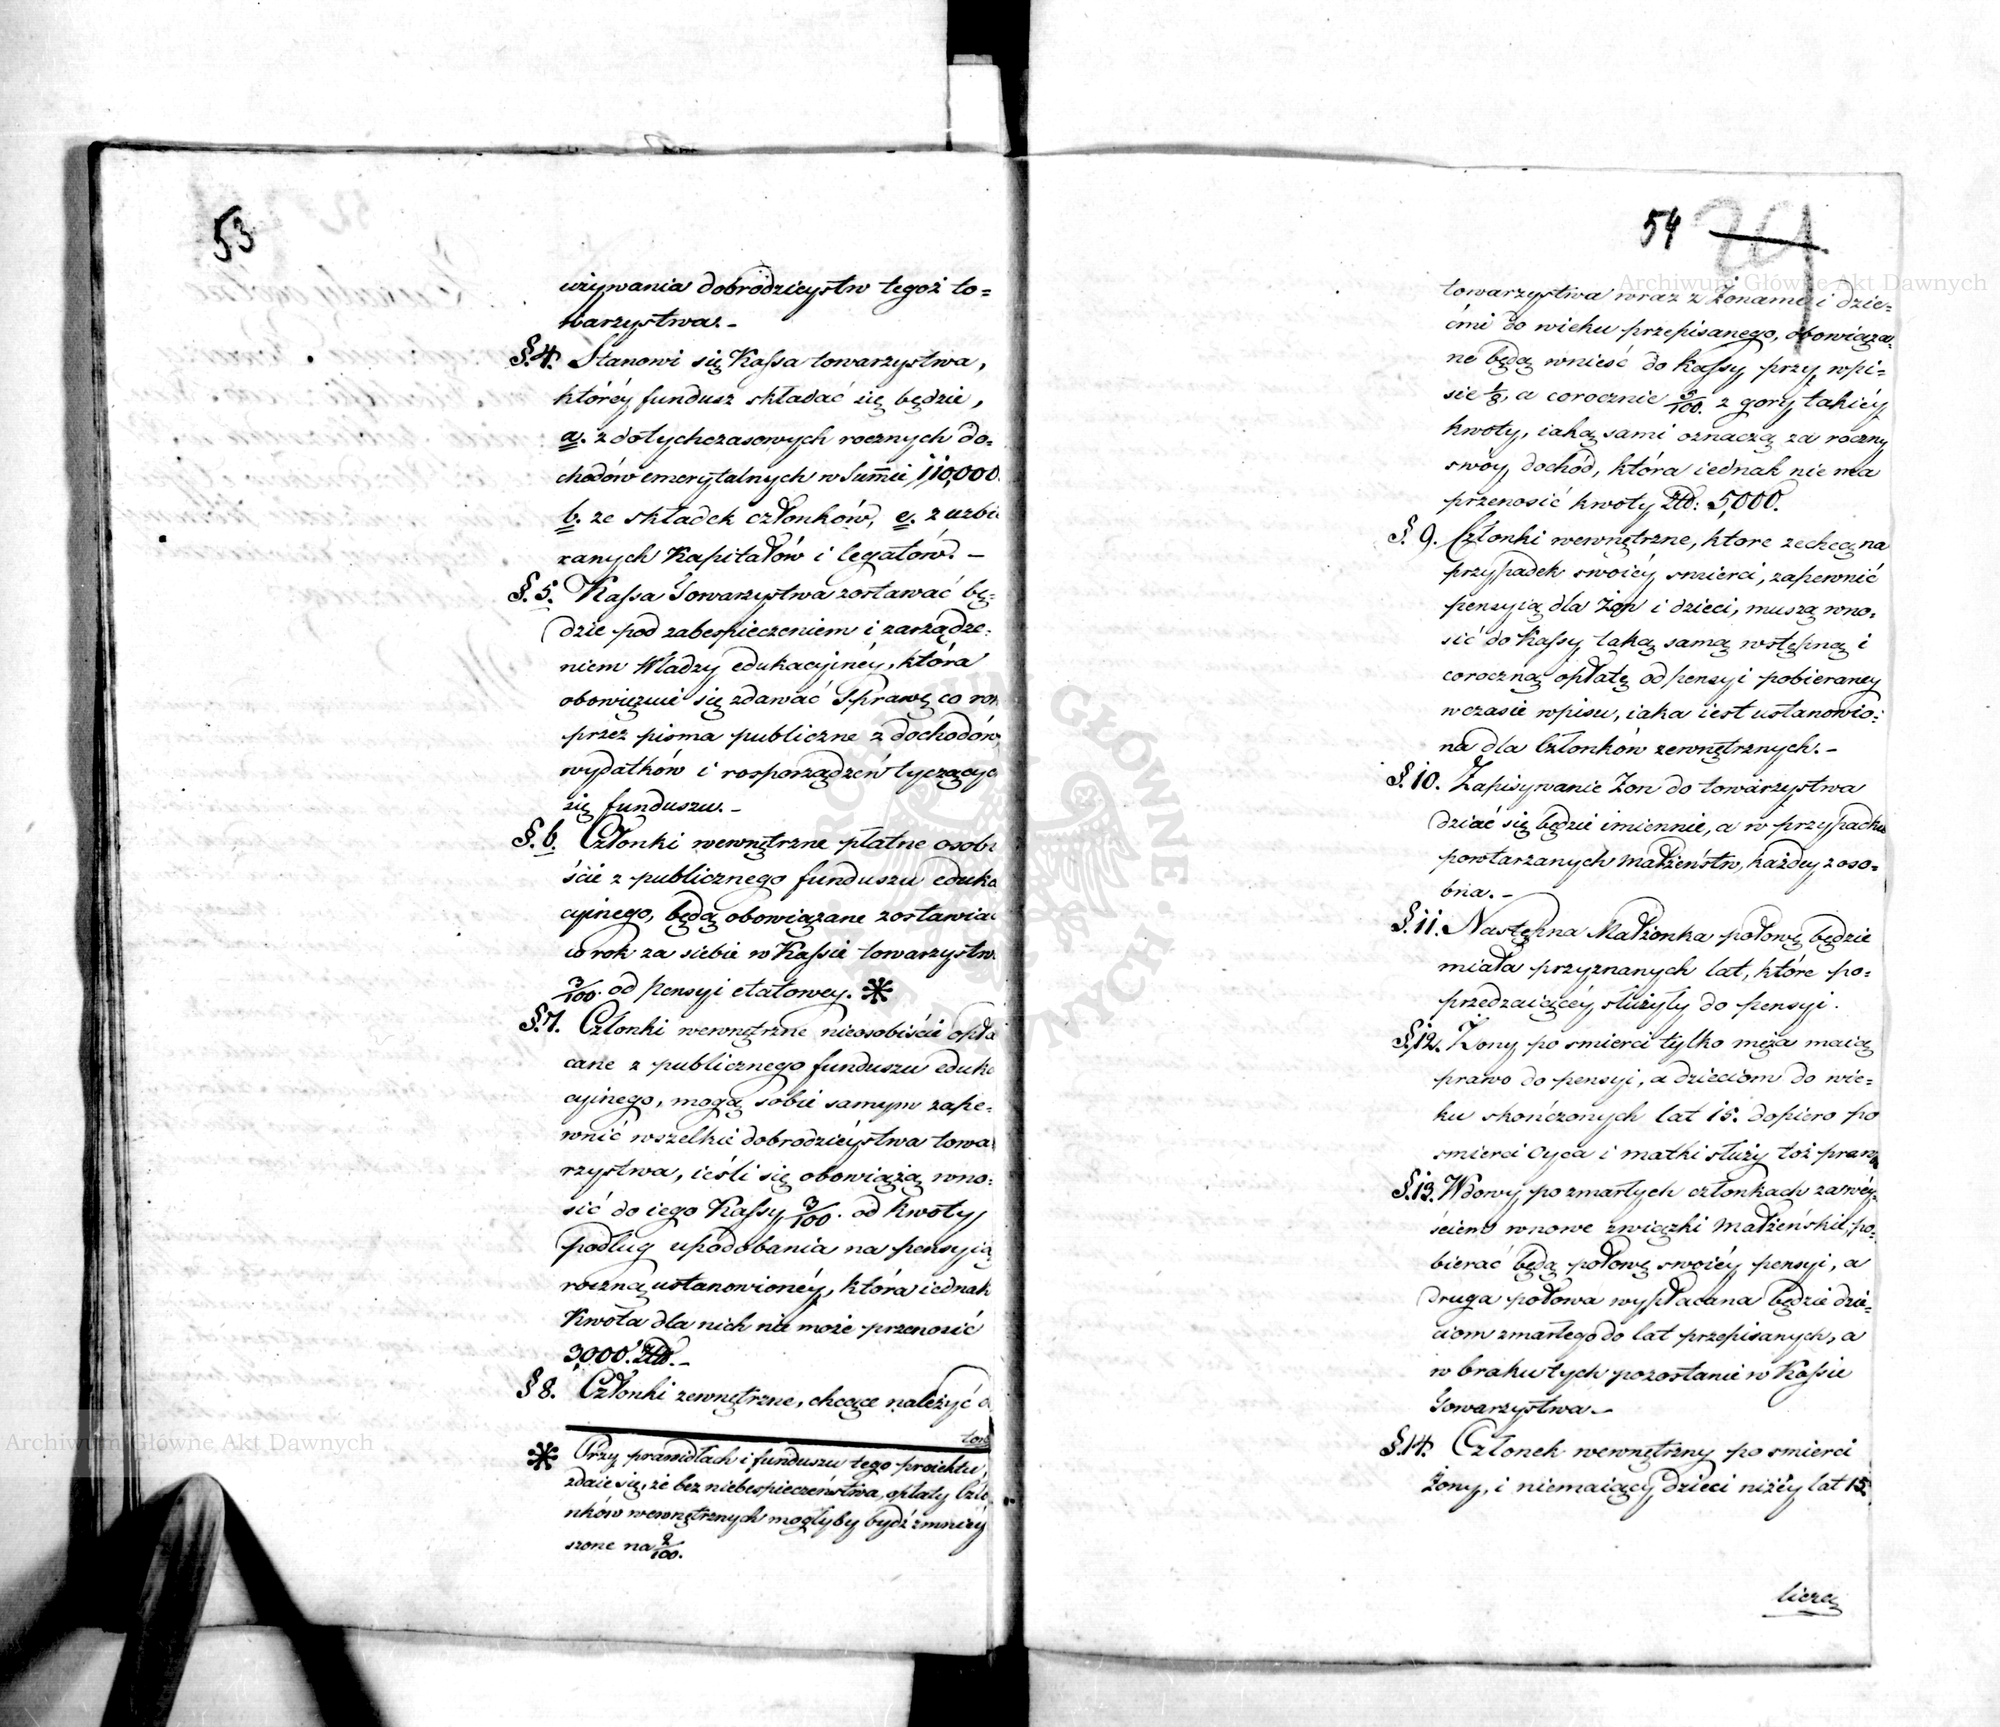 53
używania dobrodzieystw tegoż to=
warzystwa. -
§. 4. Stanowi się Kassa towarzystwa,
któréy fundusz składać się będzie,
a. z dotychczasowych rocznych do=
chodów emerytalnych w Summie 110,000.
b. ze składek członków, c. z uzbie
ranych Kapitałów i legatów. -
§. 5. Kassa Towarzystwa zostawać bę=
dzie pod zabespieczeniem i zarządze=
niem Władzy edukacyjnéy, która
obowięzuie się zdawać Sprawę co rok
przez pisma publiczne z dochodów,
wydatków i rosporządzeń tyczących
się funduszu. -
§. 6. Członki wewnętrzne płatne osobi
ście z publicznego funduszu eduka
cyinego, będą obowiązane zostawiać
co rok za siebie w Kassie towarzystwa
3/100. od pensyi etatowey. *
§. 7. Członki wewnętrzne nieosobiście opła
cane z publicznego funduszu eduka
cyinego, mogą sobie samym zape=
wnić wszelkie dobrodzieystwa towa
rzystwa, ieśli się obowiążą wno=
sić do iego Kassy 3/100. od kwoty
podług upodobania na pensyią
roczną ustanowionéy, która iednak
Kwota dla nich nie może przenosić
3,000. Złł. -
§ 8. Członki zewnętrzne, chcące należyć d
tow
* Przy prawidłach i funduszu tego proiektu,
zdaie się, że bez niebespieczeństwa, opłaty Czło
nków wewnętrznych mogłyby bydź zmniey
szone na 2/100.
54
towarzystwa wraz z Żonami i dzie=
ćmi do wieku przepisanego, obowiąza=
ne będą wnieść do kassy przy wpi=
sie 1/8, a corocznie 3/100. z gory takiéy
kwoty, iaką sami oznaczą za roczny
swóy dochód, która iednak nie ma
przenosić kwoty Złł: 5,000.
§. 9. Członki wewnętrzne, które zechcą na
przypadek swoiéy smierci, zapewnić
pensyią dla Żon i dzieci, muszą wno=
sić do Kassy taką samą wstępną i
coroczną opłatę od pensyi pobieraney
w czasie wpisu, iaka iest ustanowio=
na dla Członków zewnętrznych. -
§. 10. Zapisywanie Żon do towarzystwa
dziać się będzie imiennie, a w przypadku
powtarzanych małżeństw, każdey z oso=
bna. -
§. 11. Następna Małżonka połowę będzie
miała przyznanych lat, które po=
przedzaiącéy służyły do pensyi.
§. 12. Żony po smierci tylko męża maią
prawo do pensyi, a dzieciom do wie=
ku skończonych lat 15. dopiero po
smierci Oyca i matki służy toż prawo
§. 13. Wdowy po zmarłych członkach zawéy=
ściem w nowe związki małżeńskie, po=
bierać będą połowę swoiéy pensyi, a
druga połowa wypłacana będzie dzie=
ciom zmarłego do lat przepisanych, a
w braku tych pozostanie w Kassie
Towarzystwa. -
§. 14. Członek wewnętrzny po smierci
Żony, i niemaiący dzieci niżéy lat 15.
liczą
Archiwum Główne Akt Dawnych
Archiwum Główne Akt Dawnych